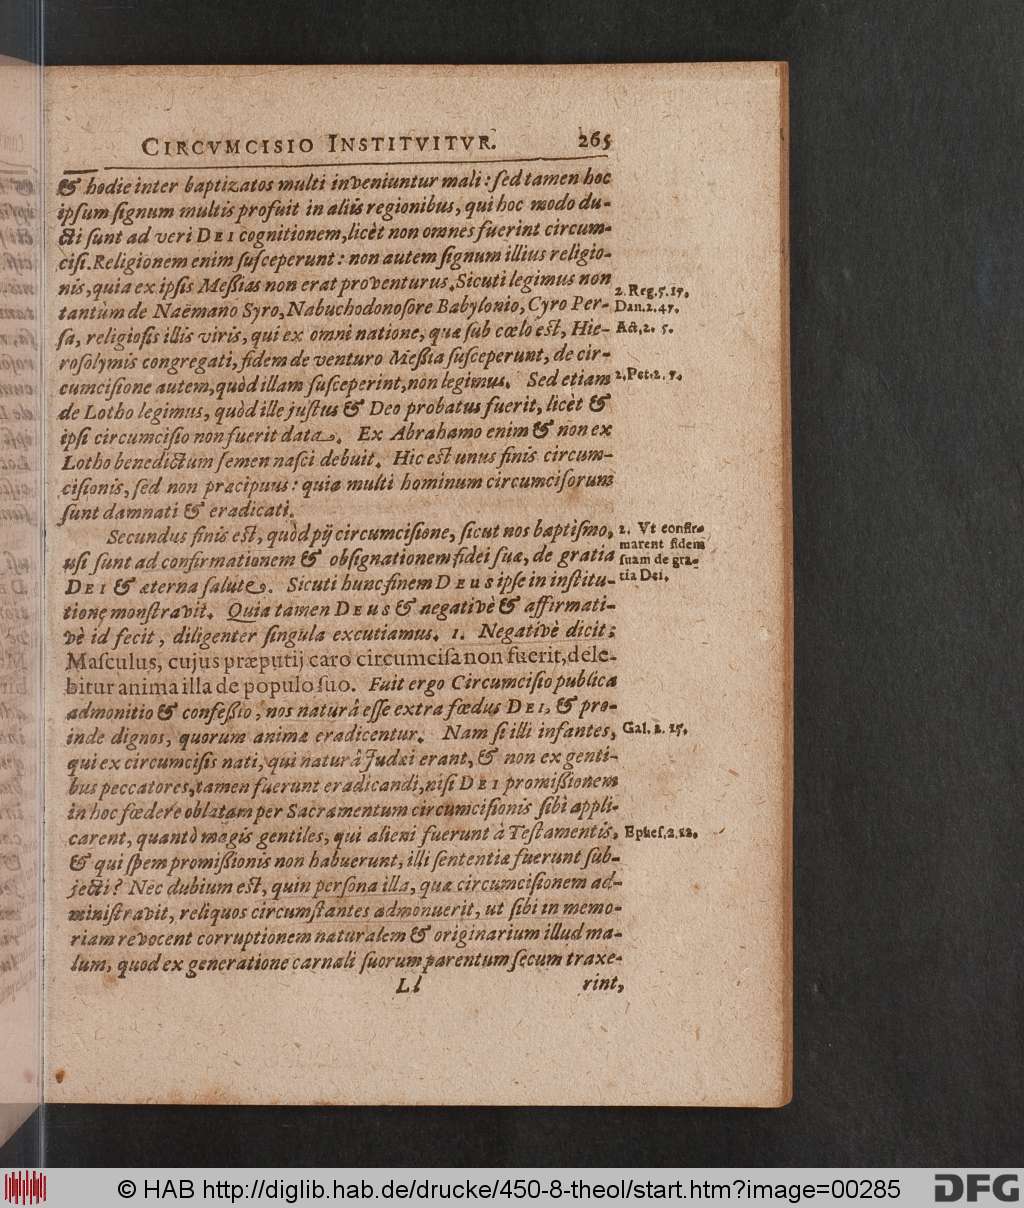 CIRCVMCISIO INSTITVITVR. 265
& hodie inter baptizatos multi inveniuntur mali: sed tamen hoc
ipsum signum multis profuit in aliis regionibus, qui hoc modo du-
cti sunt ad veri DEI cognitionem, licèt non omnes fuerint circum-
cisi. Religionem enim susceperunt: non autem signum illius religio-
nis, quia ex ipsis Messias non erat proventurus. Sicuti legimus non
2. Reg. 5. 17.
tantùm de Naëmano Syro, Nabuchodonosore Babylonio, Cyro Per-
Dan. 2. 47.
sa, religiosis illis viris, qui ex omni natione, quæ sub cœlo est, Hie-
Act. 2. 5.
rosolymis congregati, fidem de venturo Messia susceperunt, de cir-
cumcisione autem, quòd illam susceperint, non legimus. Sed etiam
2. Pet. 2. 7.
de Lotho legimus, quòd ille justus & Deo probatus fuerit, licèt &
ipsi circumcisio non fuerit data. Ex Abrahamo enim & non ex
Lotho benedictum semen nasci debuit. Hic est unus finis circum-
cisionis, sed non præcipuus: quia multi hominum circumcisorum
sunt damnati & eradicati.
Secundus finis est, quòd pij circumcisione, sicut nos baptismo,
2. Vt confir-
marent fidem
suam de gra-
tia Dei.
usi sunt ad confirmationem & obsignationem fidei suæ, de gratia
DEI & æterna salute. Sicuti hunc finem DEUS ipse in institu-
tione monstravit. Quia tamen DEUS & negativè & affirmati-
vè id fecit, diligenter singula excutiamus. 1. Negativè dicit:
Masculus, cujus præputij caro circumcisa non fuerit, dele-
bitur anima illa de populo suo. Fuit ergo Circumcisio publica
admonitio & confessio, nos naturâ esse extra fœdus DEI, & pro-
inde dignos, quorum animæ eradicentur. Nam si illi infantes,
Gal. 2. 15.
qui ex circumcisis nati, qui naturâ Judæi erant, & non ex genti-
bus peccatores, tamen fuerunt eradicandi, nisi DEI promissionem
in hoc fœdere oblatam per Sacramentum circumcisionis sibi appli-
carent, quantò magis gentiles, qui alieni fuerunt à Testamentis,
Ephes. 2. 12.
& qui spem promissionis non habuerunt, illi sententiæ fuerunt sub-
jecti? Nec dubium est, quin persona illa, quæ circumcisionem ad-
ministravit, reliquos circumstantes admonuerit, ut sibi in memo-
riam revocent corruptionem naturalem & originarium illud ma-
lum, quod ex generatione carnali suorum parentum secum traxe-
Ll rint,
© HAB http://diglib.hab.de/drucke/450-8-theol/start.htm?image=00285 DFG